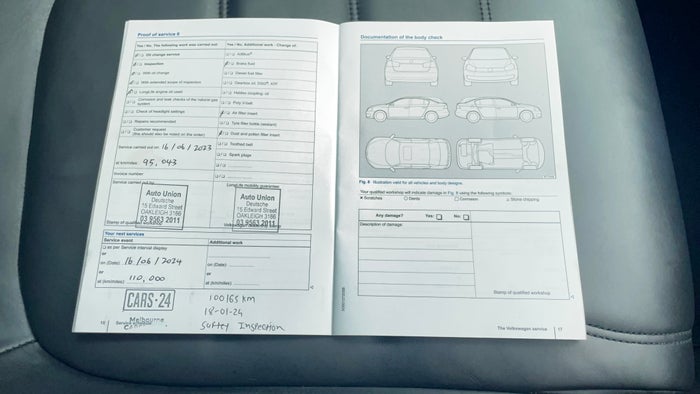 Proof of service 6
Yes / No, The following work was carried out
Yes / No, Additional work - Change of:
Oil change service
AdBlue®
Inspection
Brake fluid
With oil change
Diesel fuel filter
With extended scope of inspection
Gearbox oil, DSG®, ATF
LongLife engine oil used
Haldex coupling: oil
Corrosion and leak checks of the natural gas system
Poly V-belt
Check of headlight settings
Air filter insert
Repairs recommended
Tyre filler bottle (sealant)
Customer request
(this should also be noted on the order)
Dust and pollen filter insert
Service carried out on: 16/06/2023
Toothed belt
Spark plugs
at km/miles: 95,043
Invoice number
Service carried out by:
LongLife mobility guarantee:
Auto Union
Deutsche
15 Edward Street
OAKLEIGH 3166
03 9563 2011
Auto Union
Deutsche
15 Edward Street
OAKLEIGH 3166
03 9563 2011
Stamp of qualified
Your next services
Service event
Additional work
as per Service interval display
or
on (Date) 16/06/2024
on (Date):
or
or
at (km/miles) 110,000
at (km/miles):
CARS·24
Melbourne
100165 km
18-01-24
Saftey Inspection
Documentation of the body check
Fig. 6 Illustration valid for all vehicles and body designs.
Your qualified workshop will indicate damage in Fig. 6 using the following symbols:
× Scratches
○ Dents
□ Corrosion
Stone chipping
Any damage? Yes: ❑ No: ❑
Description of damage:
Stamp of qualified workshop
The Volkswagen service 17